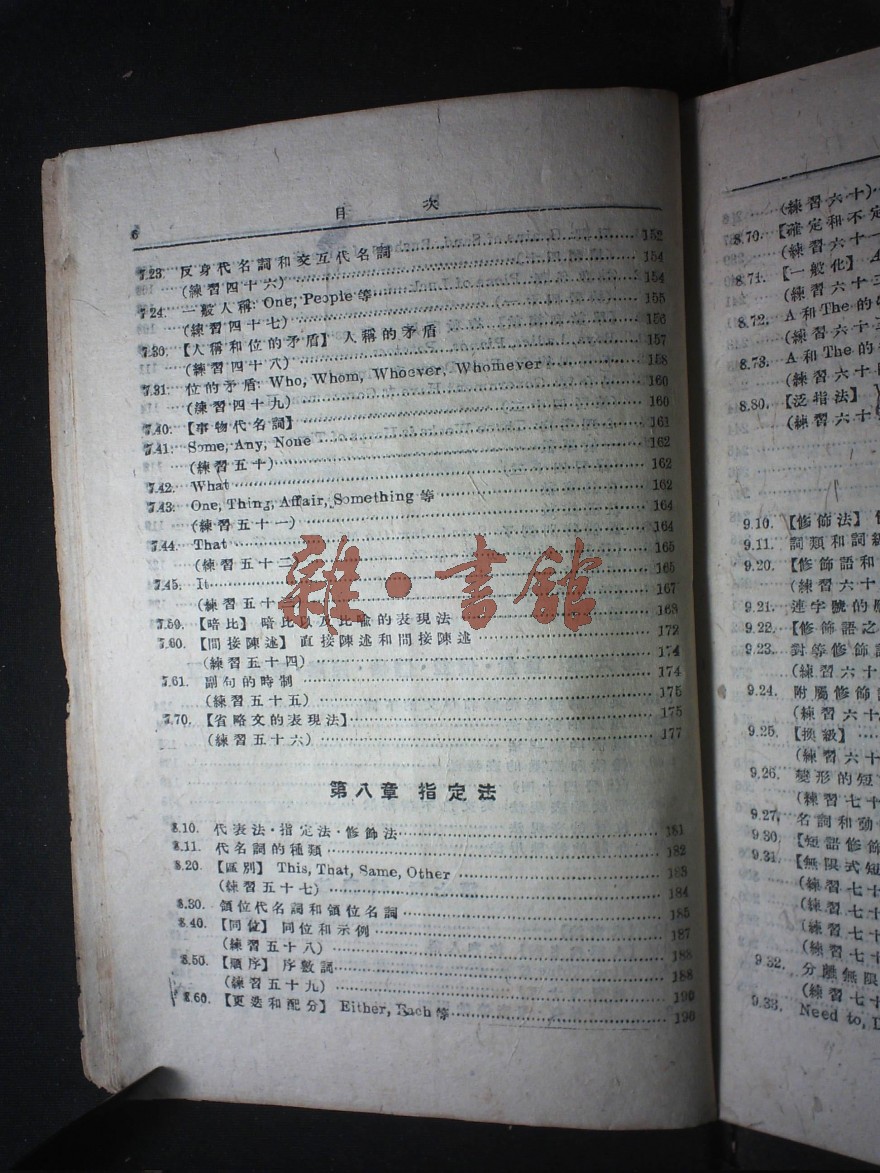 目 次
6
7.23. 反身代名詞和交互代名詞 152
(練習四十六) 154
7.24. 一般人稱: One, People 等 154
(練習四十七) 155
7.30. 【人稱和位的矛盾】 人稱的矛盾 156
(練習四十八) 157
7.31. 位的矛盾: Who, Whom, Whoever, Whomever 158
(練習四十九) 160
7.40. 【事物代名詞】 160
7.41. Some, Any, None 161
(練習五十) 162
7.42. What 162
7.43. One, Thing, Affair, Something 等 162
(練習五十一) 164
7.44. That 164
(練習五十二) 165
7.45. It 165
(練習五十 167
7.59. 【暗比】 暗比以及比喻的表現法 168
7.60. 【間接陳述】 直接陳述和間接陳述 172
(練習五十四) 174
7.61. 副句的時制 174
(練習五十五) 175
7.70. 【省略文的表現法】 175
(練習五十六) 177
第八章 指定法
8.10. 代表法·指定法·修飾法 181
8.11. 代名詞的種類 182
8.20. 【區別】 This, That, Same, Other 183
(練習五十七) 184
8.30. 領位代名詞和領位名詞 185
8.40. 【同位】 同位和示例 187
(練習五十八) 188
8.50. 【順序】 序數詞 188
(練習五十九) 190
8.60. 【更迭和配分】 Either, Each 等 190
雜·書館
(練習六十)
8.70. 【確定和不定
(練習六十一
8.71. 【一般化】 A
(練習六十
8.72. A 和 The 的
(練習六十三
8.73. A 和 The 的
(練習六十四
8.80. 【泛指法】
(練習六十
9.10. 【修飾法】
9.11. 詞類和詞
9.20. 【修飾語和
(練習六十
9.21. 連字號的
9.22. 【修飾語之
9.23. 對等修飾
(練習六十
9.24. 附屬修飾
(練習六十
9.25. 【換級】
(練習六十
9.26. 變形的短
(練習七十
9.27. 名詞和動
9.30. 【短語修飾
9.31. 【無限式短
(練習七十
(練習七十
(練習七十
(練習七十
9.32. 分離無限
(練習七十
9.33. Need to,